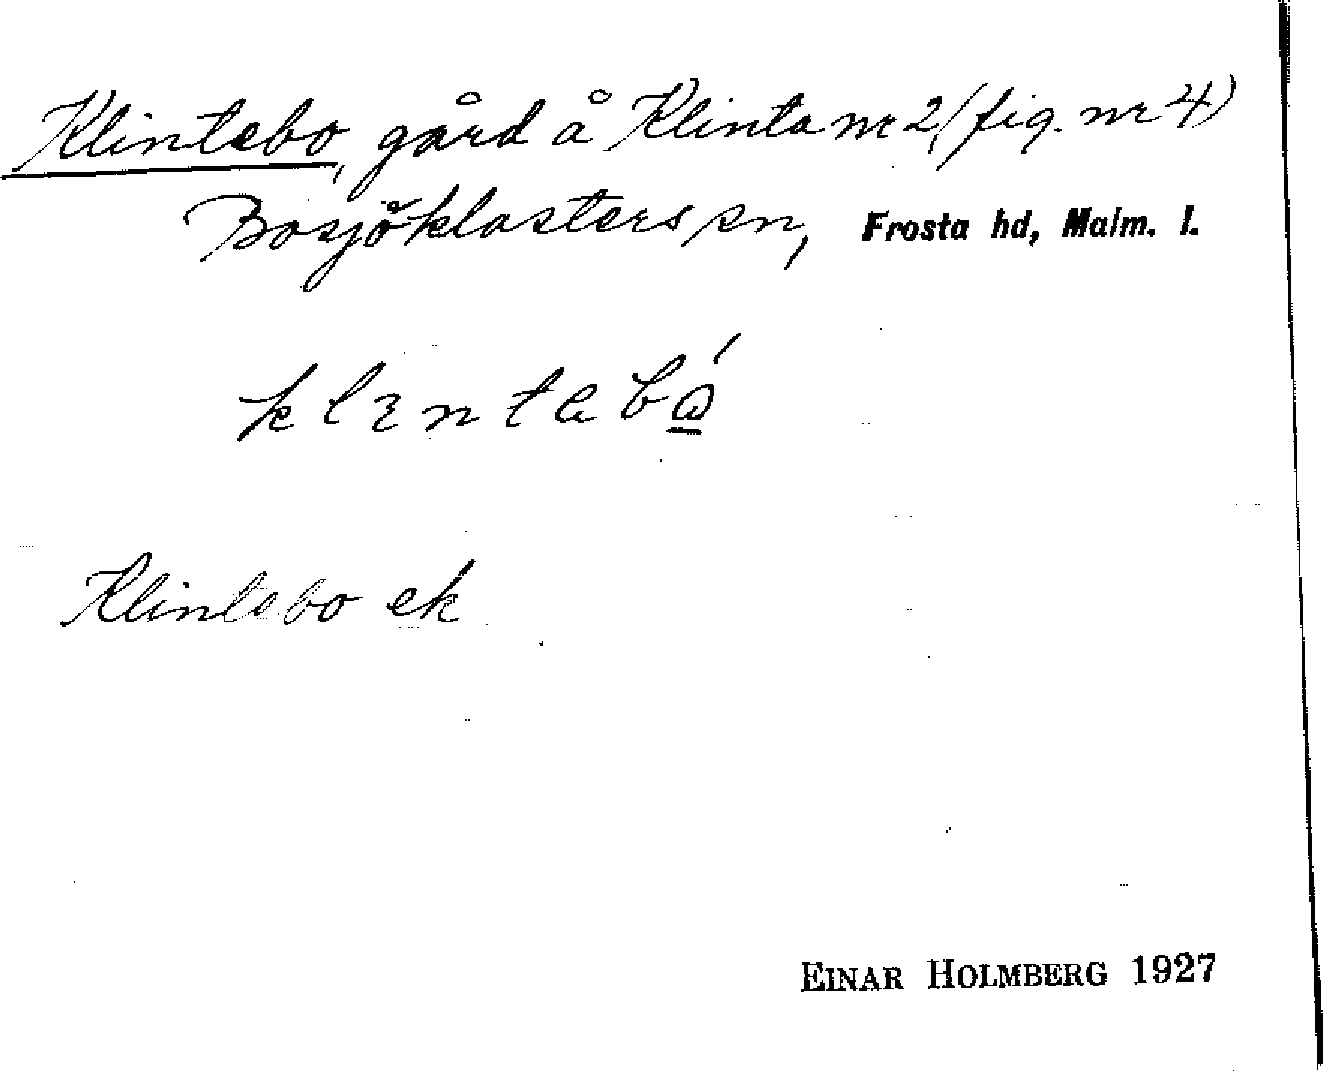 Klintebo, gård å Klinta nr 2, (fig. nr 4)
Bosjöklosters sn, Frosta hd, Malm. l.
Klintebo ek
EINAR HOLMBERG 1927